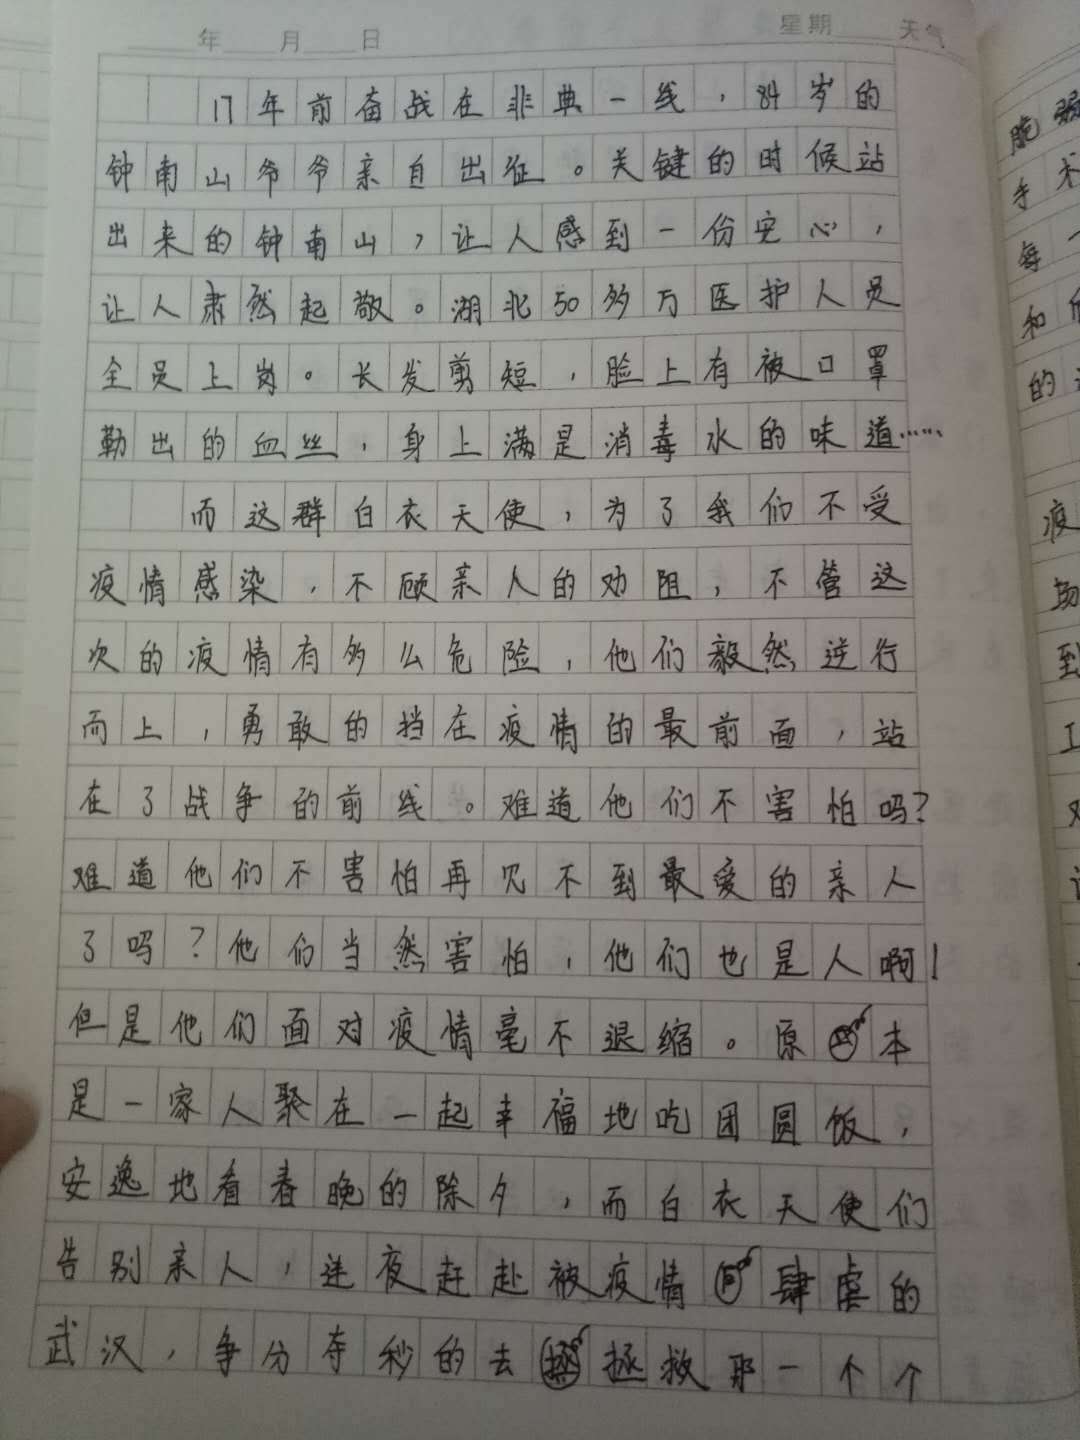 年 月 日 星期 天气
17年前奋战在非典一线，84岁的
钟南山爷爷亲自出征。关键的时候站
出来的钟南山，让人感到一份安心，
让人肃然起敬。湖北50多万医护人员
全员上岗。长发剪短，脸上有被口罩
勒出的血丝，身上满是消毒水的味道……
而这群白衣天使，为了我们不受
疫情感染，不顾亲人的劝阻，不管这
次的疫情有多么危险，他们毅然逆行
而上，勇敢的挡在疫情的最前面，站
在了战争的前线。难道他们不害怕吗？
难道他们不害怕再见不到最爱的亲人
了吗？他们当然害怕，他们也是人啊！
但是他们面对疫情毫不退缩。原本
是一家人聚在一起幸福地吃团圆饭，
安逸地看春晚的除夕，而白衣天使们
告别亲人，连夜赶赴被疫情肆虐的
武汉，争分夺秒的去拯救那一个个
脆弱
手术
每一
和
的
疫
到